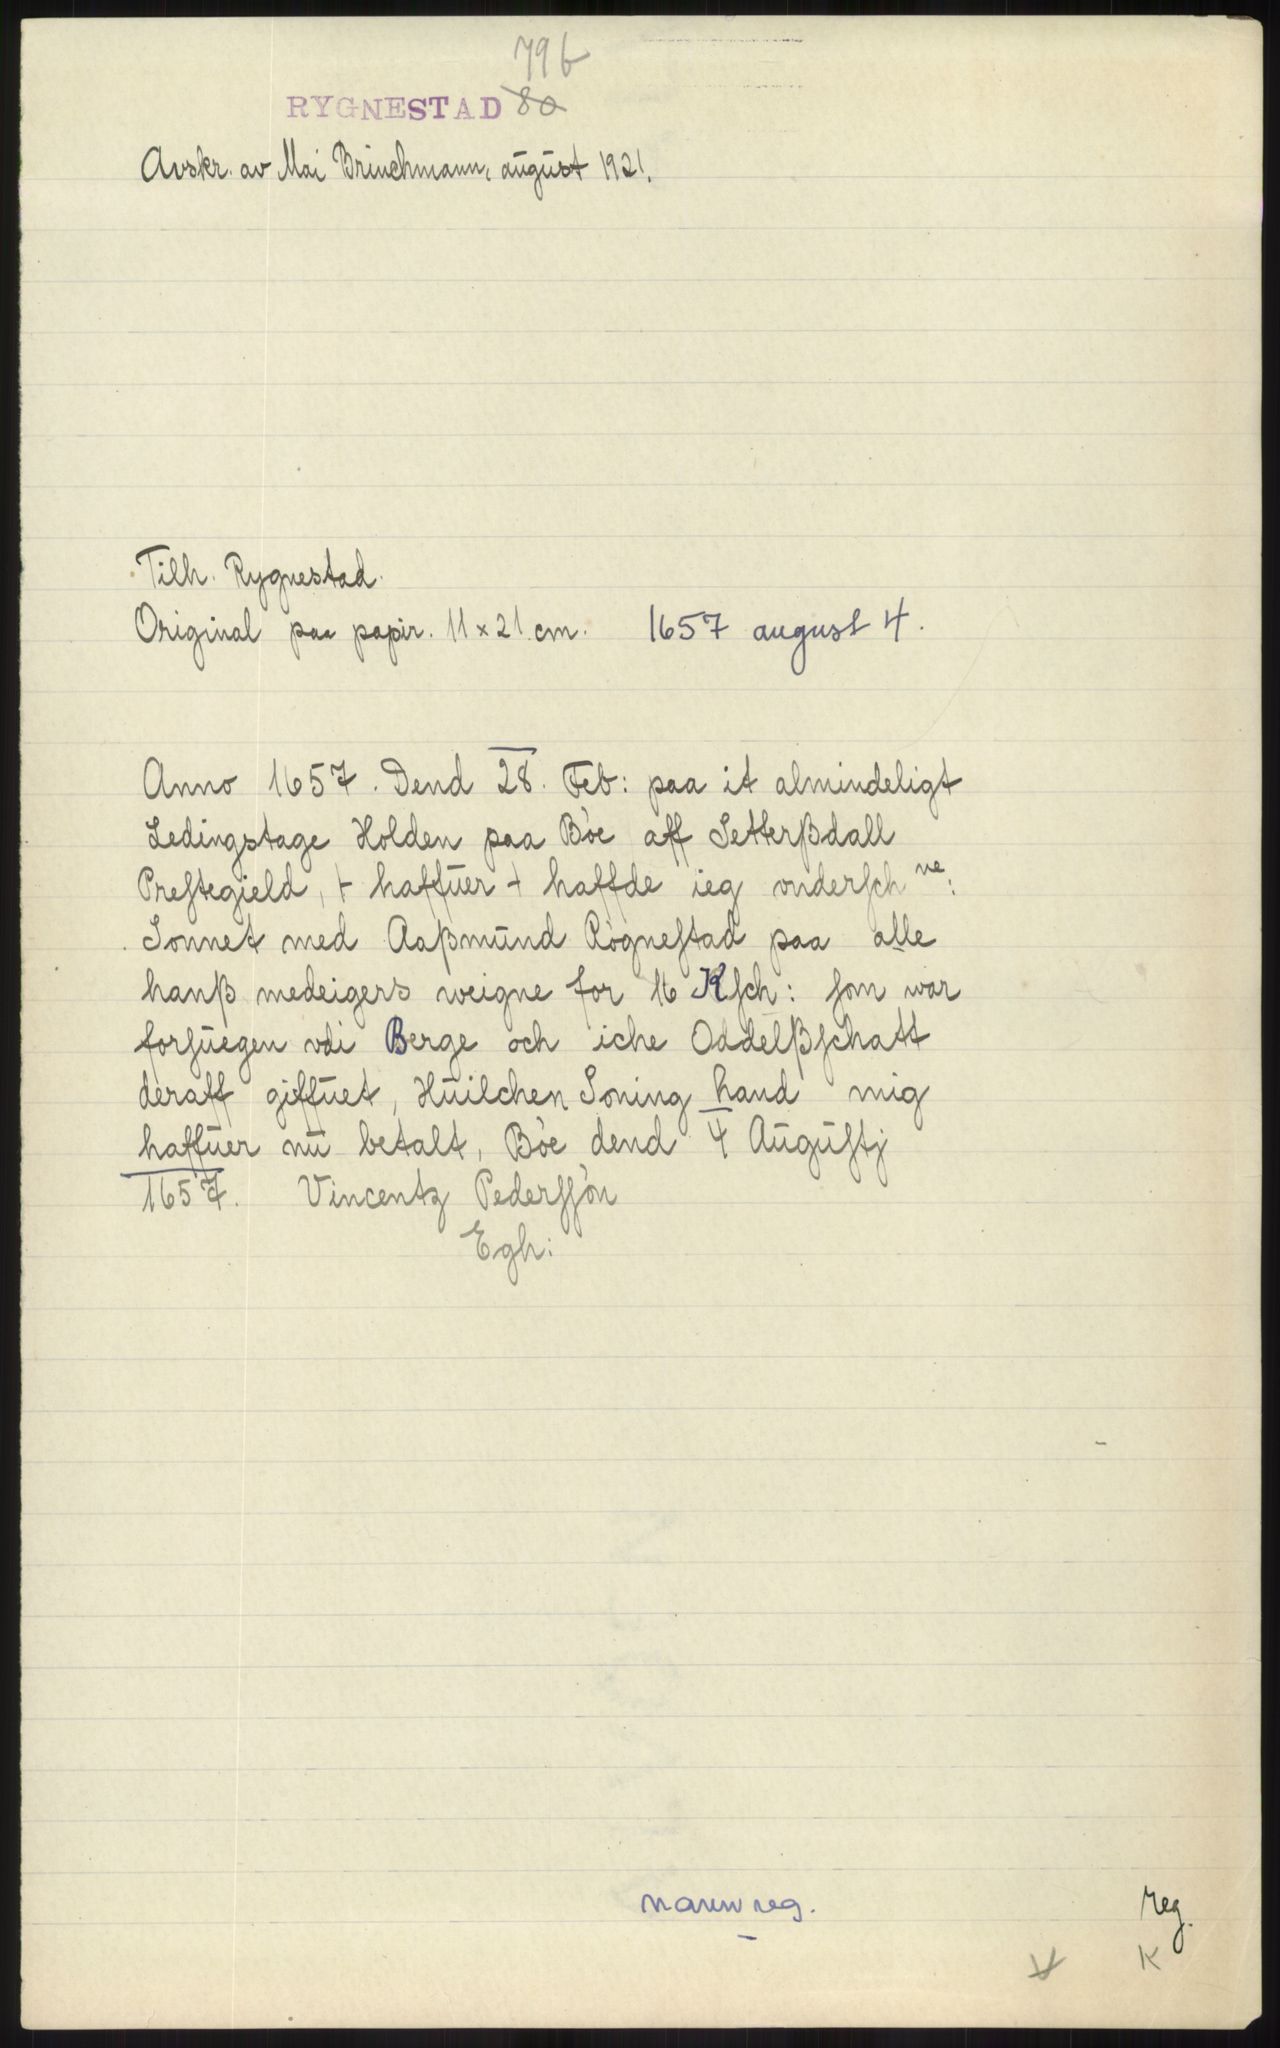 79b
RYGNESTAD 80
Avskr. av Mai Brinchmann, august 1921.
Tilh. Rygnestad.
Original paa papir. 11 x 21 cm. 1657 august 4.
Anno 1657. Dend 28. Feb: paa it almindeligt
Ledingstage Holden paa Bòe aff Setterßdall
Preſtegield, + haffuer + haffde ieg vnderſch ne:
Sonnet med Aaßmund Rògneſtad paa alle
hanß medeigers weigne for 16 Kſch: ſom war
forſuegen vdi Berge och iche Oddelßſchatt
deraff giffuet, Huilchen Soning hand mig
haffuer nu betalt, Bòe dend 4 Auguſtj
1657. Vincentz Pederſſòn
Egh:
navnreg.
reg.
K